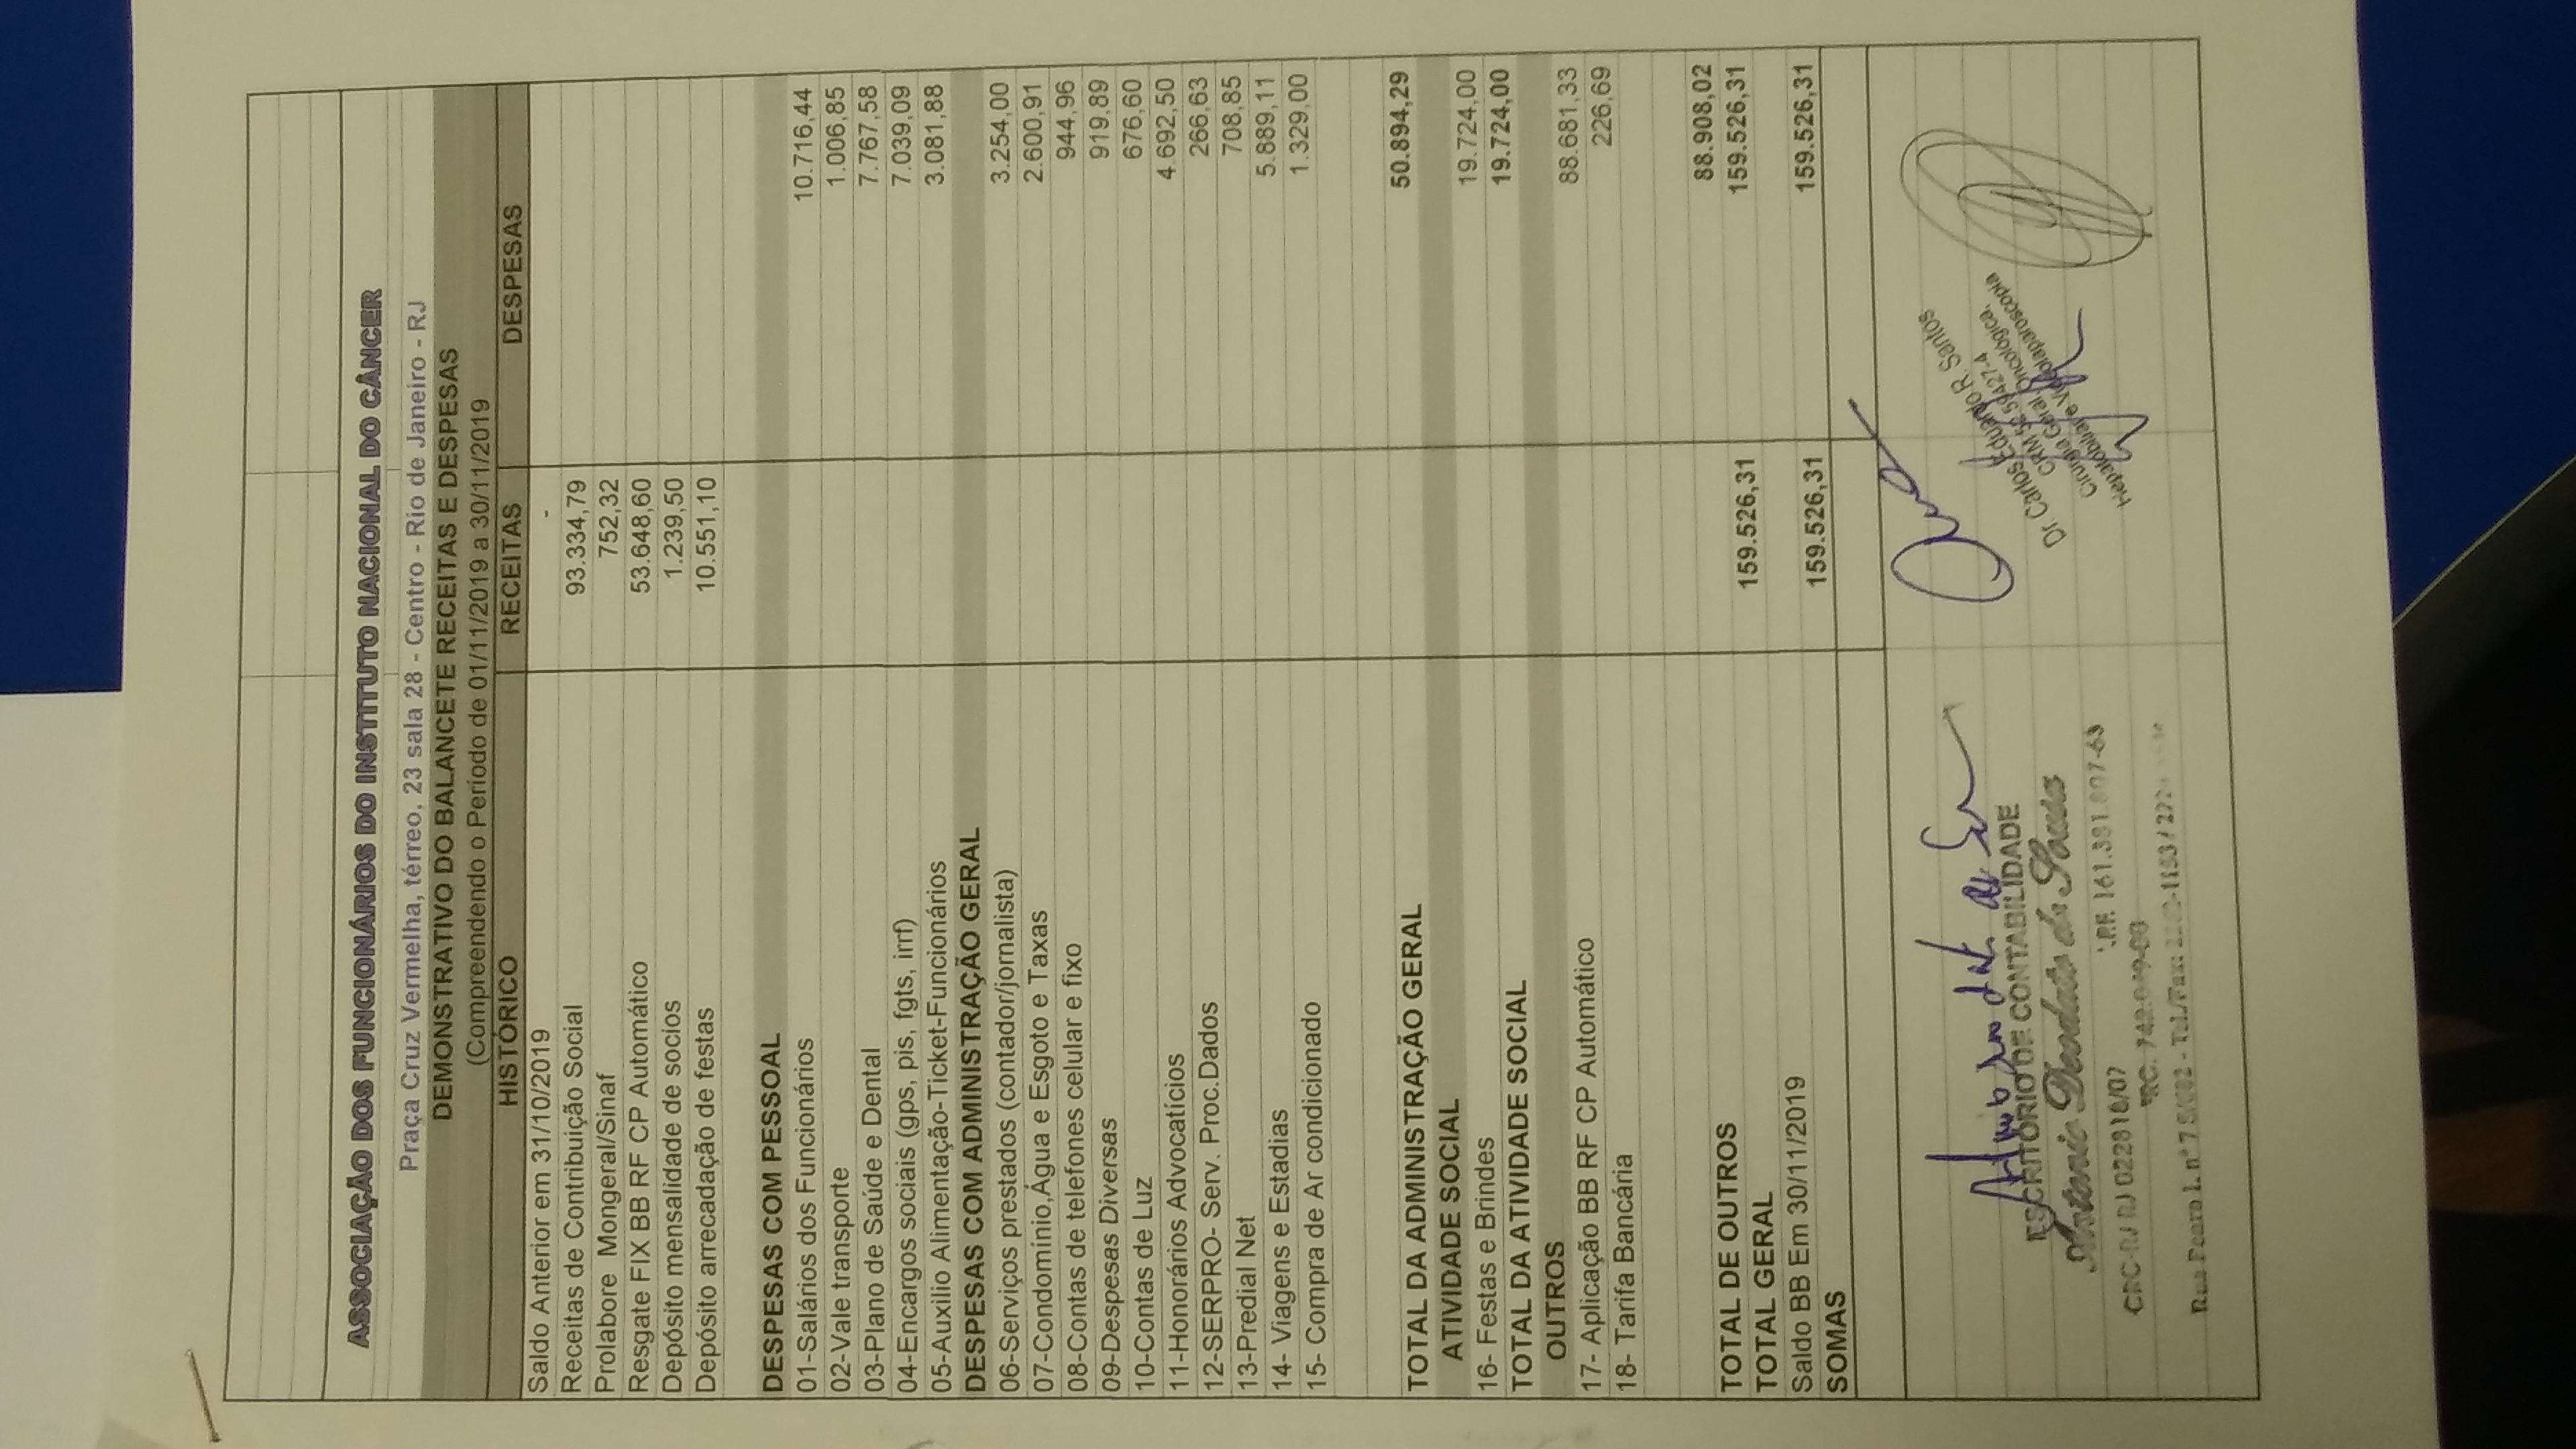 ASSOCIAÇÃO DOS FUNCIONÁRIOS DO INSTITUTO NACIONAL DO CÂNCER
Praça Cruz Vermelha, térreo, 23 sala 28 - Centro - Rio de Janeiro - RJ
DEMONSTRATIVO DO BALANCETE RECEITAS E DESPESAS
(Compreendendo o Período de 01/11/2019 a 30/11/2019
HISTÓRICO RECEITAS DESPESAS
Saldo Anterior em 31/10/2019 -
Receitas de Contribuição Social 93.334,79
Prolabore Mongeral/Sinaf 752,32
Resgate FIX BB RF CP Automático 53.648,60
Depósito mensalidade de socios 1.239,50
Depósito arrecadação de festas 10.551,10
DESPESAS COM PESSOAL
01-Salários dos Funcionários 10.716,44
02-Vale transporte 1.006,85
03-Plano de Saúde e Dental 7.767,58
04-Encargos sociais (gps, pis, fgts, irrf) 7.039,09
05-Auxilio Alimentação-Ticket-Funcionários 3.081,88
DESPESAS COM ADMINISTRAÇÃO GERAL
06-Serviços prestados (contador/jornalista) 3.254,00
07-Condomínio,Água e Esgoto e Taxas 2.600,91
08-Contas de telefones celular e fixo 944,96
09-Despesas Diversas 919,89
10-Contas de Luz 676,60
11-Honorários Advocatícios 4.692,50
12-SERPRO- Serv. Proc.Dados 266,63
13-Predial Net 708,85
14- Viagens e Estadias 5.889,11
15- Compra de Ar condicionado 1.329,00
TOTAL DA ADMINISTRAÇÃO GERAL 50.894,29
ATIVIDADE SOCIAL
16- Festas e Brindes 19.724,00
TOTAL DA ATIVIDADE SOCIAL 19.724,00
OUTROS
17- Aplicação BB RF CP Automático 88.681,33
18- Tarifa Bancária 226,69
TOTAL DE OUTROS 88.908,02
TOTAL GERAL 159.526,31 159.526,31
Saldo BB Em 30/11/2019
SOMAS 159.526,31 159.526,31
ESCRITÓRIO DE CONTABILIDADE
Antonio Deodato de Sousa
CRC-RJ RJ 022810/07
Dr Carlos Eduardo R. Santos
CRM 52.59427-4
Cirurgia Geral, Oncológica,
Hepatobiliar e Videolaparoscopia